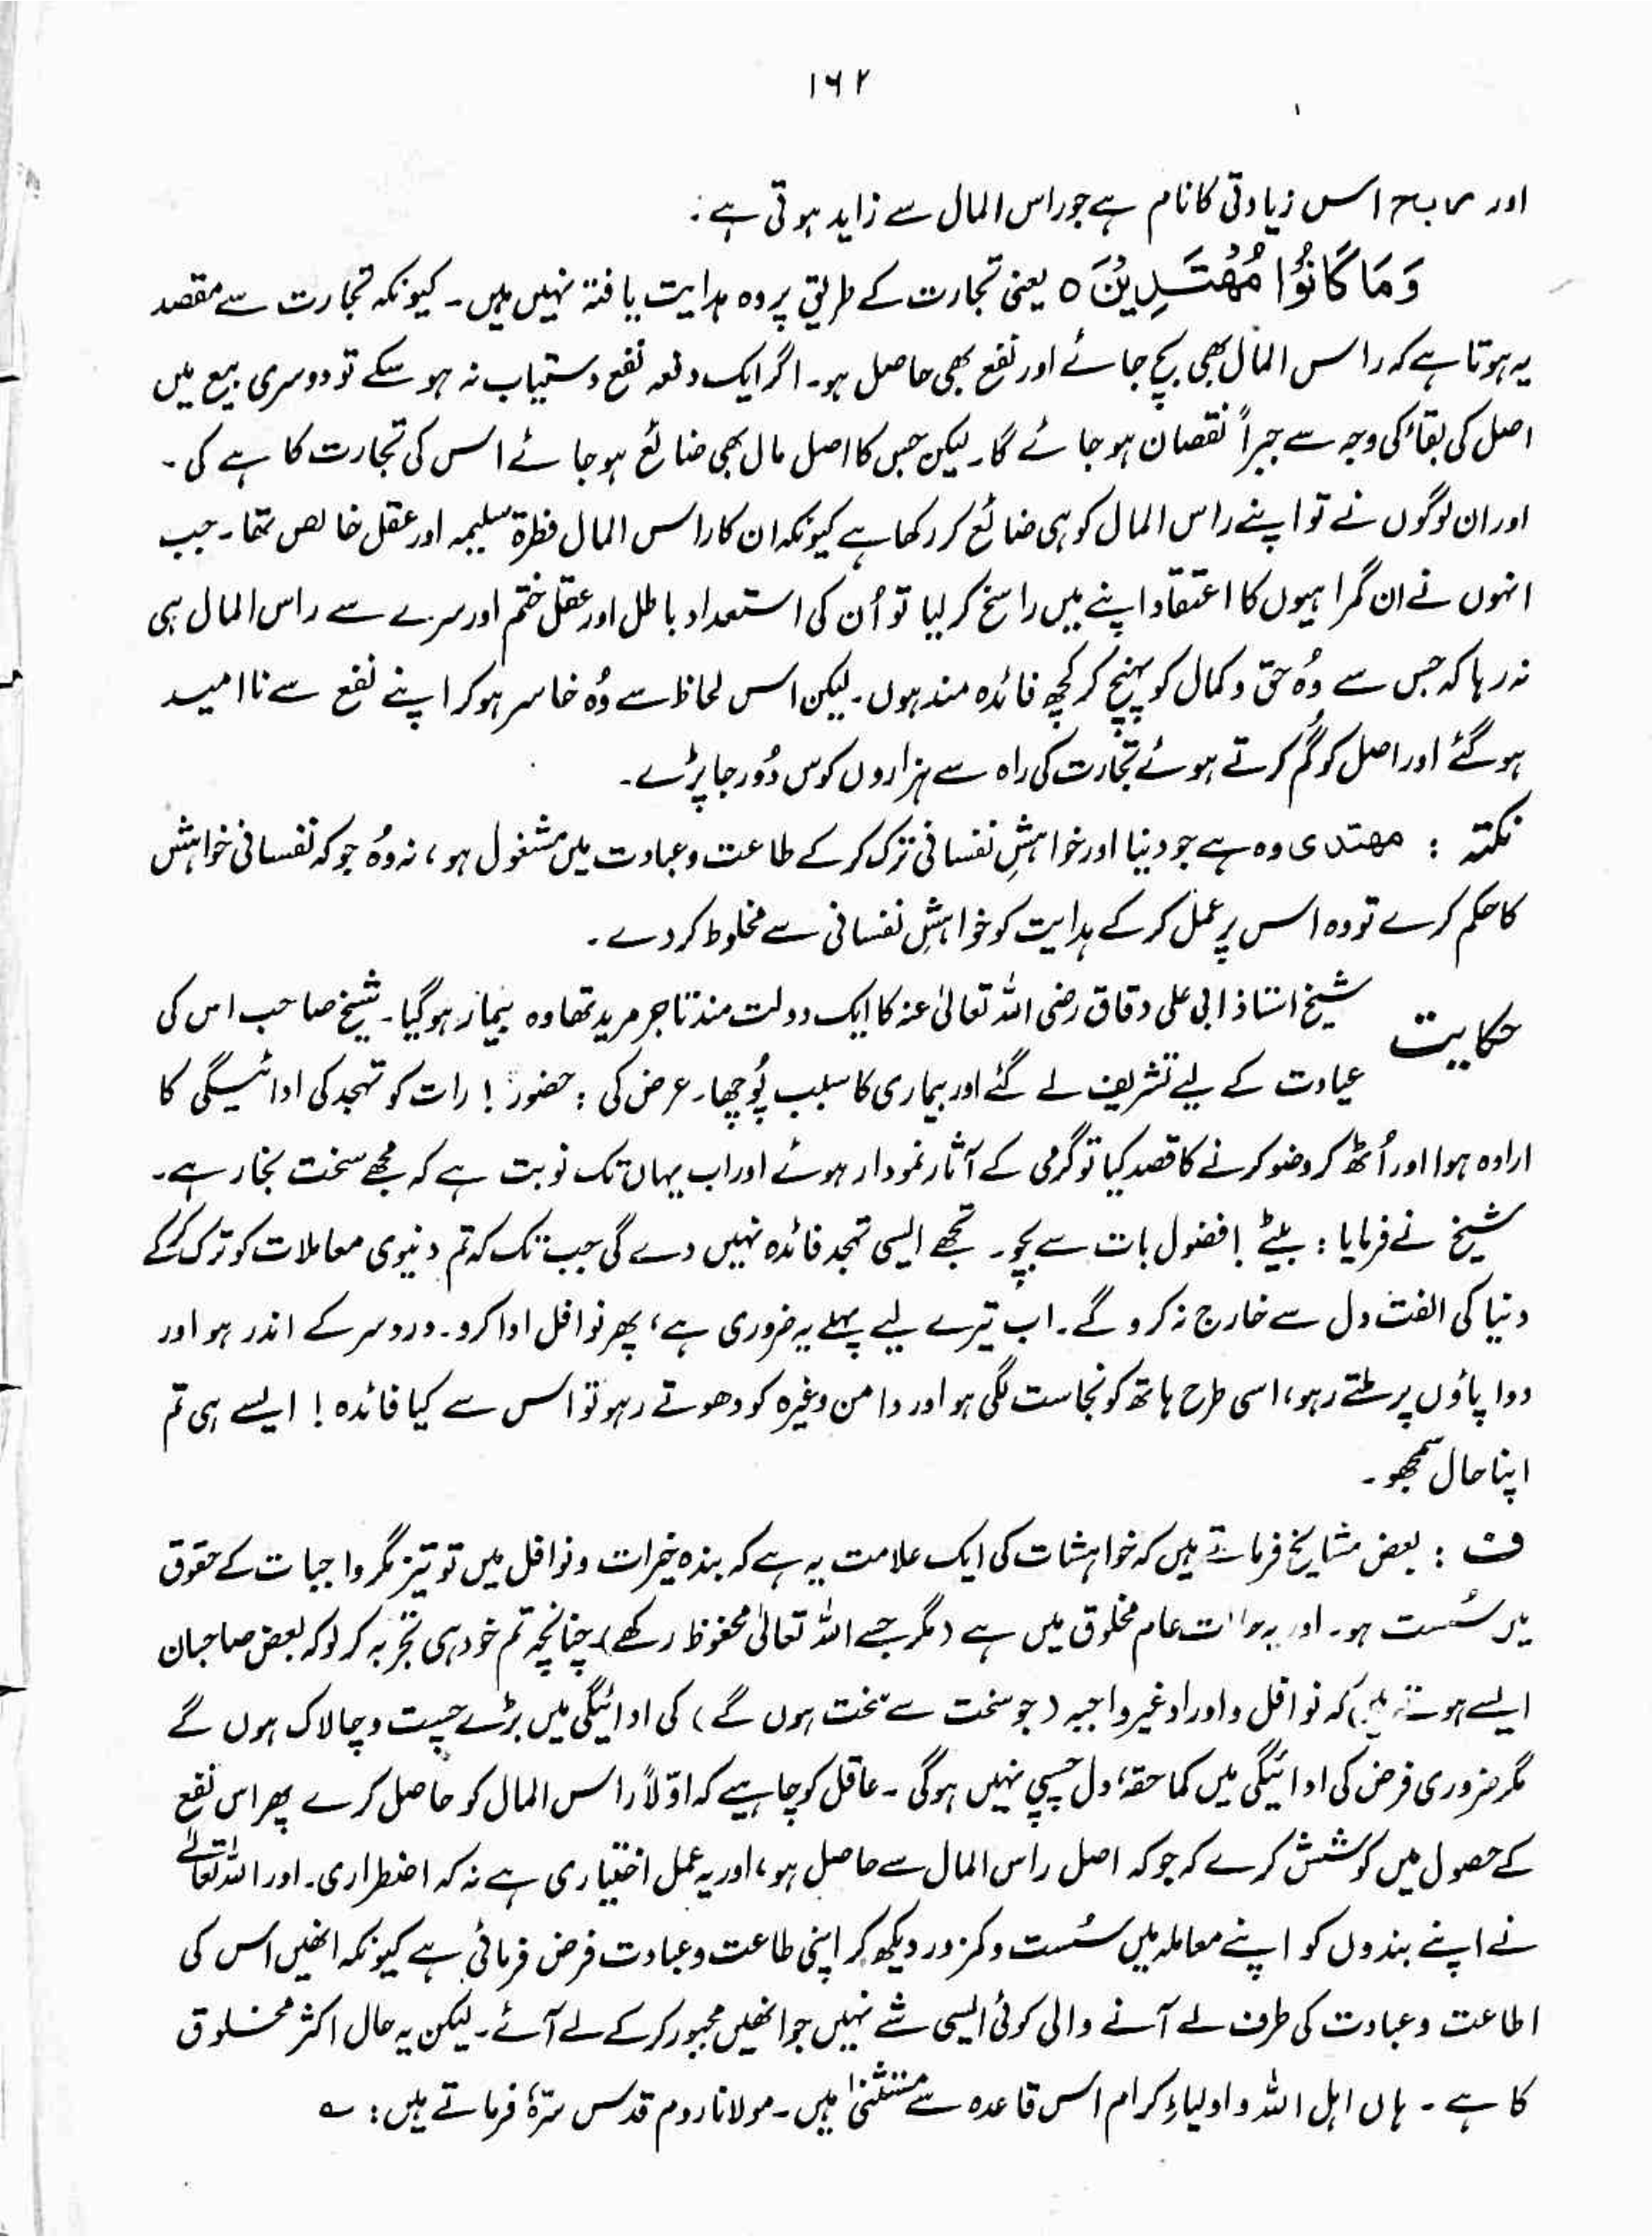 ۱۶۲
اور ربح اس زیادتی کا نام ہے جو راس المال سے زاید ہوتی ہے :
وَمَا كَانُوْا مُهْتَدِيْنَ ٥ یعنی تجارت کے طریق پر وہ ہدایت یافتہ نہیں ہیں ۔ کیونکہ تجارت سے مقصد
یہ ہوتا ہے کہ راس المال بھی بچ جائے اور نفع بھی حاصل ہو ۔ اگر ایک دفعہ نفع دستیاب نہ ہو سکے تو دوسری بیع میں
اصل کی بقاء کی وجہ سے جبراً نقصان ہو جائے گا ۔ لیکن جس کا اصل مال بھی ضائع ہو جائے اس کی تجارت کا ہے کی ۔
اور ان لوگوں نے تو اپنے راس المال کو ہی ضائع کر رکھا ہے کیونکہ ان کا راس المال فطرۃ سلیمہ اور عقل خالص تھا ۔ جب
انہوں نے ان گمراہیوں کا اعتقاد اپنے میں راسخ کر لیا تو اُن کی استعداد باطل اور عقل ختم اور سرے سے راس المال ہی
نہ رہا کہ جس سے وُہ حق و کمال کو پہنچ کر کچھ فائدہ مند ہوں ۔ لیکن اس لحاظ سے وُہ خاسر ہو کر اپنے نفع سے نا امید
ہو گئے اور اصل کو گُم کرتے ہوئے تجارت کی راہ سے ہزاروں کوس دُور جا پڑے ۔
نکتہ : مھتدی وہ ہے جو دنیا اور خواہشِ نفسانی ترک کر کے طاعت و عبادت میں مشغول ہو ، نہ وُہ جو کہ نفسانی خواہش
کا حکم کرے تو وہ اس پر عمل کر کے ہدایت کو خواہشِ نفسانی سے مخلوط کر دے ۔
حکایت شیخ استاذ ابی علی دقاق رضی اللہ تعالیٰ عنہ کا ایک دولت مند تاجر مرید تھا وہ بیمار ہو گیا ۔ شیخ صاحب اس کی
عیادت کے لیے تشریف لے گئے اور بیماری کا سبب پُوچھا ۔ عرض کی : حضور ! رات کو تہجد کی ادائیگی کا
ارادہ ہوا اور اُٹھ کر وضو کرنے کا قصد کیا تو گرمی کے آثار نمودار ہوئے اور اب یہاں تک نوبت ہے کہ مجھے سخت بخار ہے ۔
شیخ نے فرمایا : بیٹے ! فضول بات سے بچو ۔ تجھے ایسی تہجد فائدہ نہیں دے گی جب تک کہ تم دنیوی معاملات کو ترک کر کے
دنیا کی الفت دل سے خارج نہ کرو گے ۔ اب تیرے لیے پہلے یہ ضروری ہے ، پھر نوافل ادا کرو ۔ درد سر کے اندر ہو اور
دوا پاؤں پر ملتے رہو ، اسی طرح ہاتھ کو نجاست لگی ہو اور دامن وغیرہ کو دھوتے رہو تو اس سے کیا فائدہ ! ایسے ہی تم
اپنا حال سمجھو ۔
ف : بعض مشایخ فرماتے ہیں کہ خواہشات کی ایک علامت یہ ہے کہ بندہ خیرات و نوافل میں تو تیز مگر واجبات کے حقوق
میں سُست ہو ۔ اور یہ عام مخلوق میں ہے ( مگر جسے اللہ تعالیٰ محفوظ رکھے ) چنانچہ تم خود ہی تجربہ کر لو کہ بعض صاحبان
ایسے ہوتے ہیں کہ نوافل و اوراد غیر واجبہ ( جو سخت سے سخت ہوں گے ) کی ادائیگی میں بڑے چست و چالاک ہوں گے
مگر ضروری فرض کی ادائیگی میں کما حقہٗ دل چسپی نہیں ہوگی ۔ عاقل کو چاہیے کہ اوّلاً راس المال کو حاصل کرے پھر اس نفع
کے حصول میں کوشش کرے کہ جو کہ اصل راس المال سے حاصل ہو ، اور یہ عمل اختیاری ہے نہ کہ اضطراری ۔ اور اللہ تعالیٰ
نے اپنے بندوں کو اپنے معاملہ میں سُست و کمزور دیکھ کر اپنی طاعت و عبادت فرض فرمائی ہے کیونکہ انھیں اس کی
اطاعت و عبادت کی طرف لے آنے والی کوئی ایسی شے نہیں جو انھیں مجبور کر کے لے آئے ۔ لیکن یہ حال اکثر مخلوق
کا ہے ۔ ہاں اہل اللہ و اولیاءِ کرام اس قاعدہ سے مستثنیٰ ہیں ۔ مولانا روم قدس سرّہٗ فرماتے ہیں : ؎